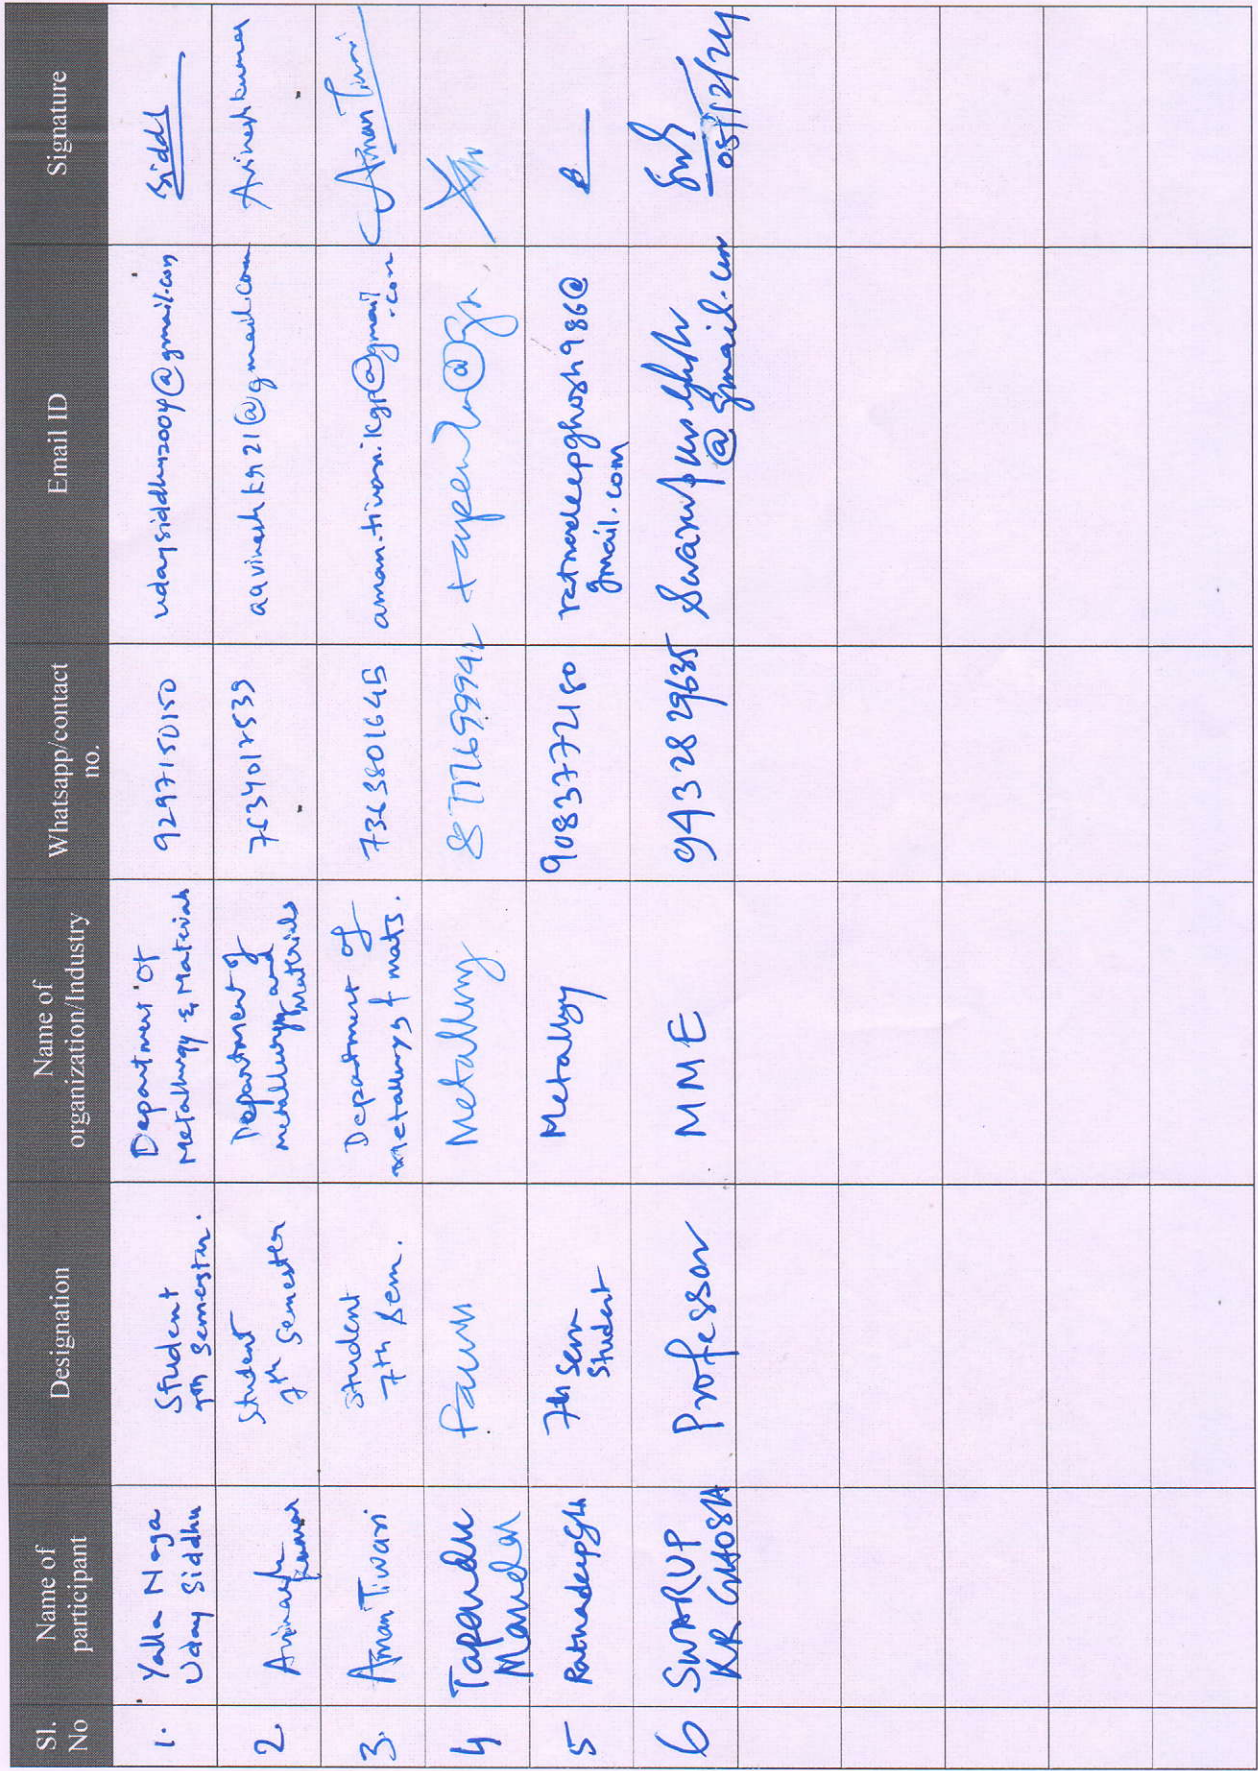 Sl. No
Name of participant
Designation
Name of organization/Industry
Whatsapp/contact no.
Email ID
Signature
1.
Yalla Naga
Uday Siddhu
Student
7th Semester.
Department of
Metallurgy & Material
9297150150
udaysiddhu2004@gmail.com
Siddh
2
Avinash
Kumar
Student
7th Semester
Department of
metallurgy and
Materials
aavinashkr21@gmail.com
Avinash Kumar
3.
Aman Tiwari
Student
7th Sem.
Department of
metallurgy & mats.
aman.tiwari.kgp@gmail
.com
Aman Tiwari
4
Tapendu
Mandal
Metallurgy
5
7th Sem
Student
Metallgy
9083772180
ratnadeepghosh986@
gmail.com
6
SWARUP
KR GHOSH
Professor
MME
9432829635
@gmail.com
05/12/24